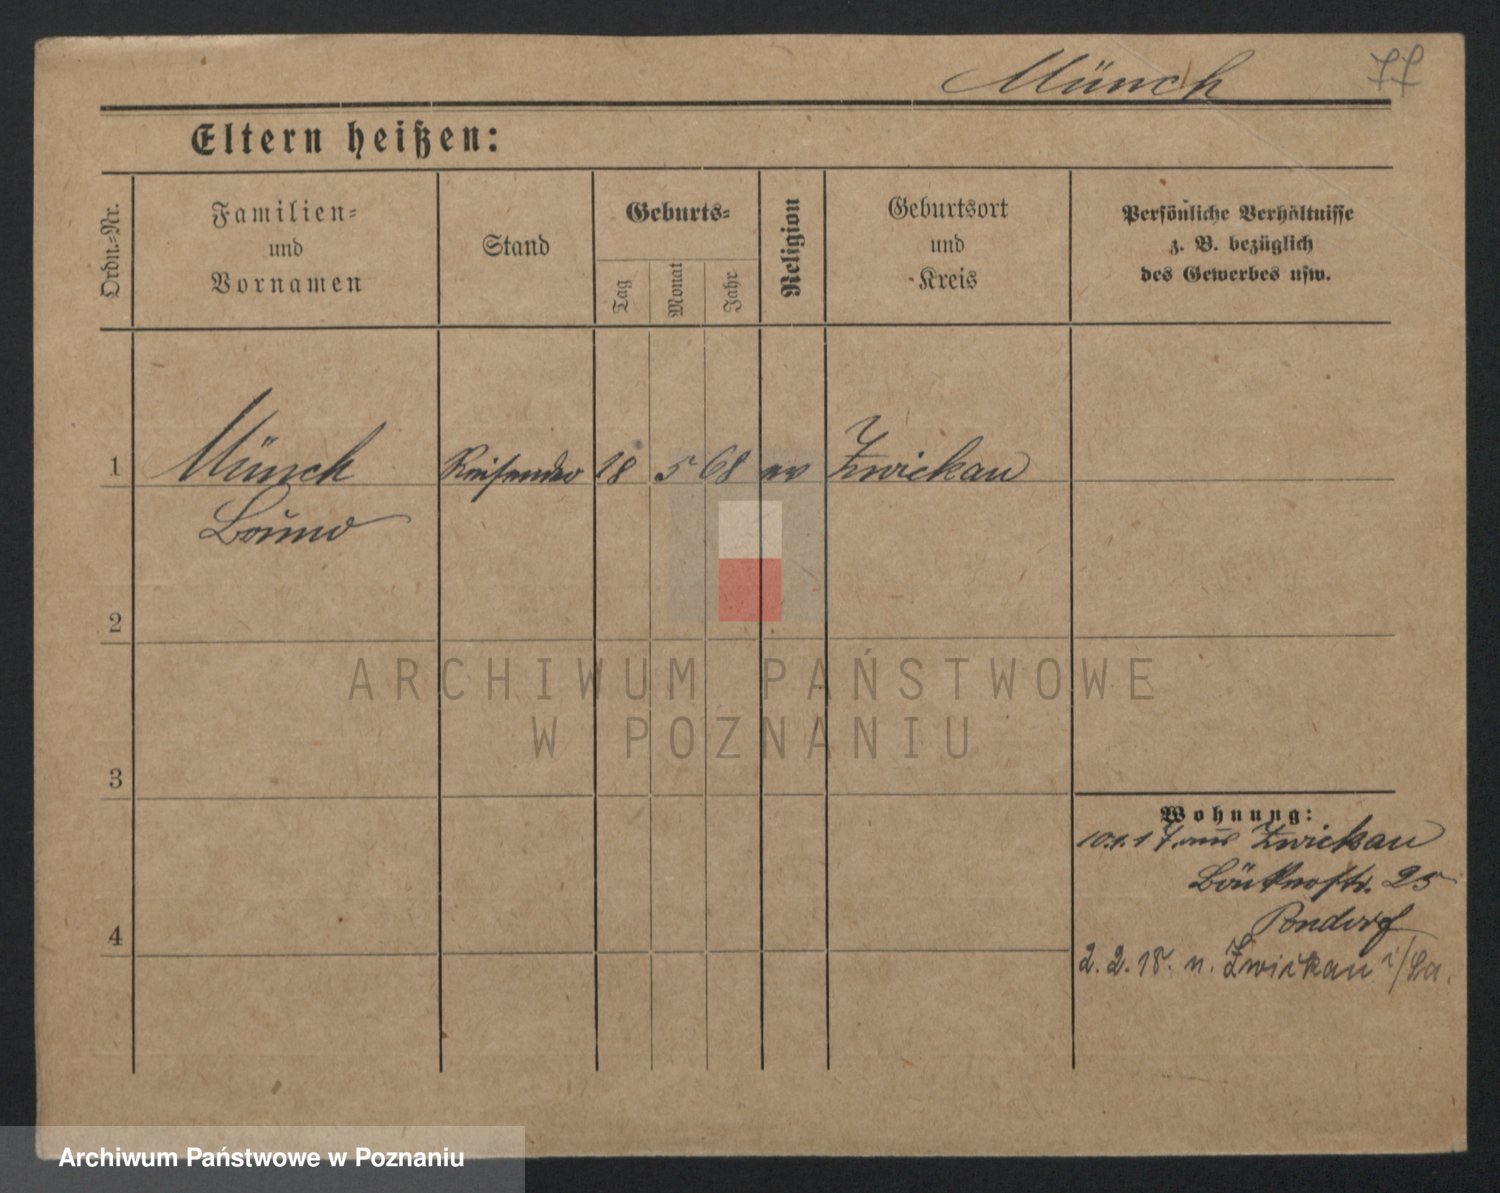 Münch
77
Eltern heißen:
Ordn.-Nr.
Familien-
und
Vornamen
Stand
Geburts-
Tag
Monat
Jahr
Religion
Geburtsort
und
Kreis
Persönliche Verhältnisse
z. B. bezüglich
des Gewerbes usw.
1
Münch
Reisender
18
5
68
ev
Zwickau
Bruno
2
ARCHIWUM PAŃSTWOWE
W POZNANIU
3
Wohnung:
10.1.17. aus Zwickau
25
4
2.2.18. n. Zwickau i/Sa.
Archiwum Państwowe w Poznaniu